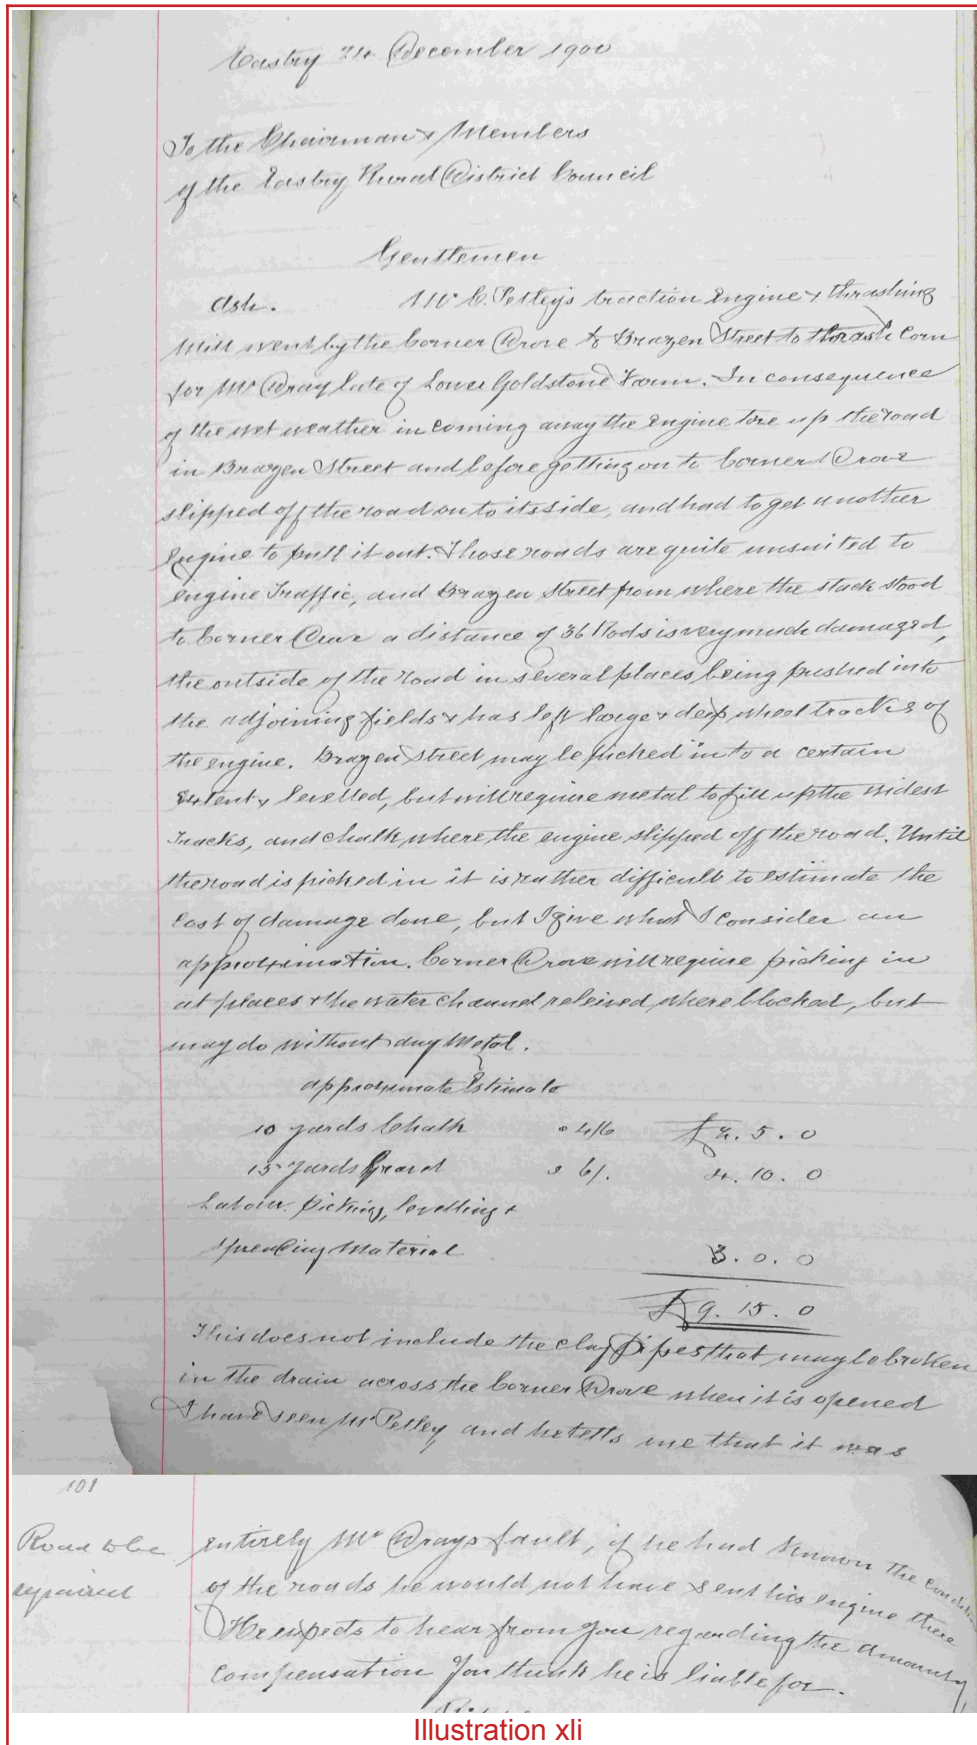 Eastry 24 December 1900
To the Chairman & Members
of the Eastry Rural District Council
Gentlemen
Ash. Mr C. Petley's traction Engine & thrashing
Mill went by the Corner Drove to Brazen Street to thrash Corn
for Mr Dray late of Lower Goldstone Farm. In consequence
of the wet weather in coming away the Engine tore up the road
in Brazen Street and before getting on to Corner Drove
slipped off the road on to its side, and had to get another
Engine to pull it out. Those roads are quite unsuited to
Engine Traffic, and Brazen Street from where the stack stood
to Corner Drove a distance of 36 Rods is very much damaged,
the outside of the road in several places being pushed into
the adjoining fields & has left large & deep wheel tracks of
the engine. Brazen Street may be picked in to a certain
Extent & levelled, but will require metal to fill up the widest
Tracks, and chalk where the engine slipped off the road. Until
the road is picked in it is rather difficult to estimate the
Cost of damage done, but I give what I consider an
approximation. Corner Drove will require picking in
at places & the water channel relieved where blocked, but
may do without any Metal.
approximate Estimate
10 yards Chalk 4/6 £2. 5. 0
15 yards Gravel 6/. 4. 10. 0
Labour picking, levelling &
spreading Material 3. 0. 0
£9. 15. 0
This does not include the clay pipes that may be broken
in the drain across the Corner Drove when it is opened
I have seen Mr Petley, and he tells me that it was
101
Road to be
repaired
entirely Mr Drays fault, if he had known the condition
of the roads he would not have sent his engine there
He expects to hear from you regarding the amount
compensation you think he is liable for.
Illustration xli